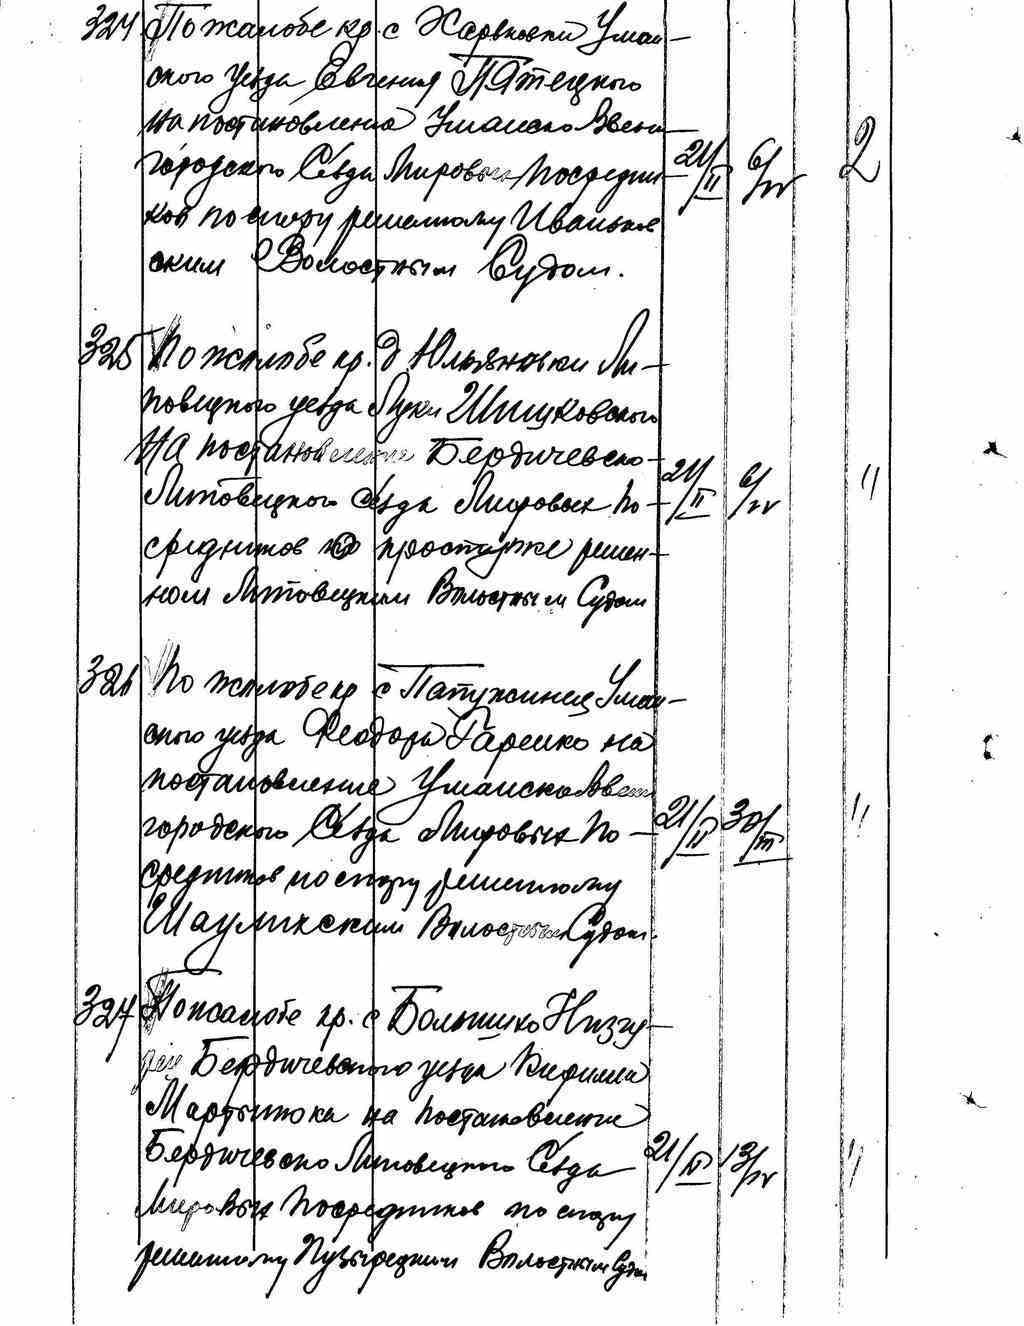 324 По жалобе кр. с Харьковки Уман-
ского уезда Евгения Пятецкого
на постановления Уманско Звени
городского Сезда Мировых Посредни-
ков по спору решенному Иваньков
ским Волостным Судом.
21/II 6/IV 2
325 По жалобе кр. д Юльяновки Ли-
повецкого уезда Луки Шишковского
на постановление Бердичевско-
Липовецкого Сезда Мировых По-
средников по проступке решен-
ном Липовецким Волостным Судом
21/II 6/IV "
326 По жалобе кр с Папужинец Уман-
ского уезда Феодора Гаренко на
постановление Уманско Звени
городского Сезда Мировых По-
средников по спору решенному
Шаулихским Волостным Судом.
21/II 30/III "
327 По жалобе кр. с Большико Низгу-
рец Бердичевского уезда Кирилла
Мартынюка на постановление
Бердичевско Липовецкого Сезда
Мировых Посредников по спору
решенному Пузырецким Волостным Судом
21/II 13/IV "